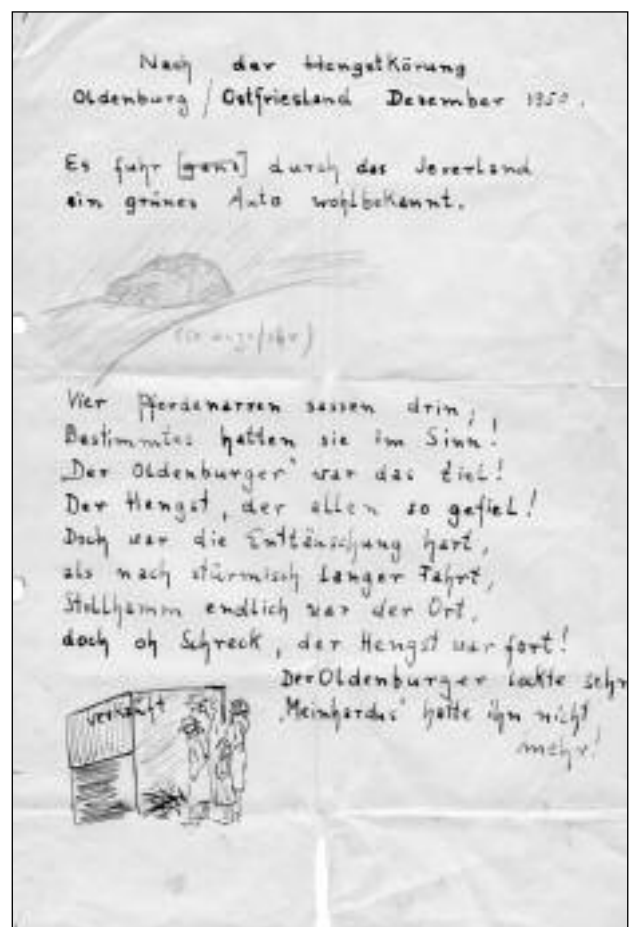 Nach der Hengstkörung
Oldenburg / Ostfriesland Dezember 1950.
Es fuhr [ganz] durch das Jeverland
ein grünes Auto wohlbekannt.
(so ungefähr)
Vier Pferdenarren sassen drin,
Bestimmtes hatten sie im Sinn!
„Der Oldenburger" war das Ziel!
Der Hengst, der allen so gefiel!
Doch war die Enttäuschung hart,
als nach stürmisch langer Fahrt,
Stollhamm endlich war der Ort,
doch oh Schreck, der Hengst war fort!
Der Oldenburger lockte sehr
„Meinhardus" hatte ihn nicht
mehr!
verkauft